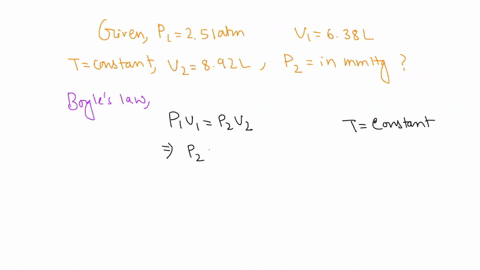 Given, P₁ = 2.51atm V₁ = 6.38L
T = constant, V₂ = 8.92L, P₂ = in mmHg ?
Boyle's law,
P₁V₁ = P₂V₂ T = Constant
⇒ P₂